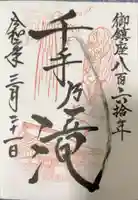 御鎮座八百六拾年
千手乃滝
令和三年三月二十一日